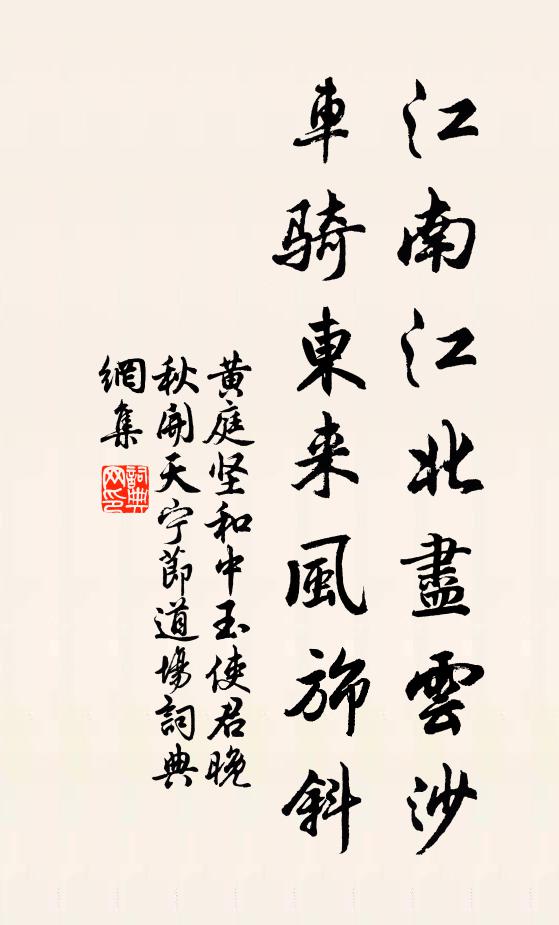 江南江北盡雲沙
車騎東来風旆斜
黄庭坚和中玉使君晚
秋開天宁節道場詞典
網集
詞典網印